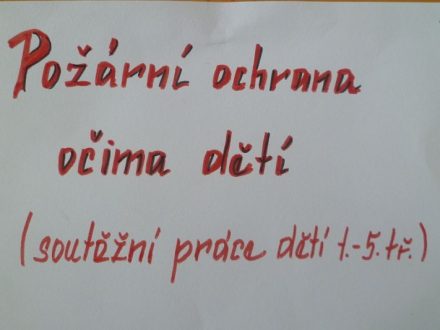 Požární ochrana
očima dětí
(soutěžní práce dětí 1.-5.tř.)